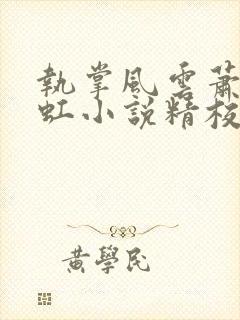 執掌風雲蕭
虹小說精校
黃學民